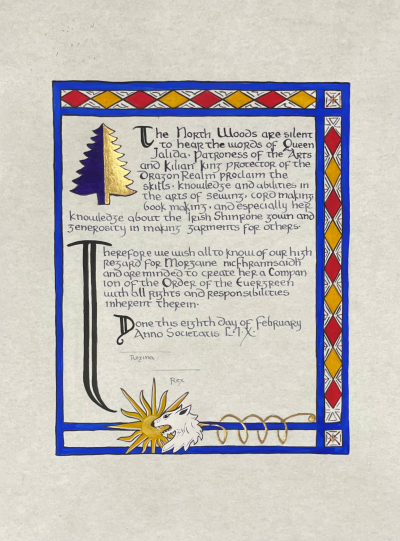 The North Woods are silent
to hear the words of Queen
Jalida, Patroness of the Arts
and Kilian King protector of the
Dragon Realm proclaim the
skills, knowledge and abilities in
the arts of sewing, cord making
book making, and especially her
knowledge about the Irish Shinrone gown and
generosity in making garments for others.
Therefore we wish all to know of our high
regard for Morgaine mcfhrannsaidh
and are minded to create her a Compan
ion of the Order of the Evergreen
with all rights and responsibilities
inherent therein.
Done this eighth day of February
Anno Societatis L.I.X.
Regina
Rex